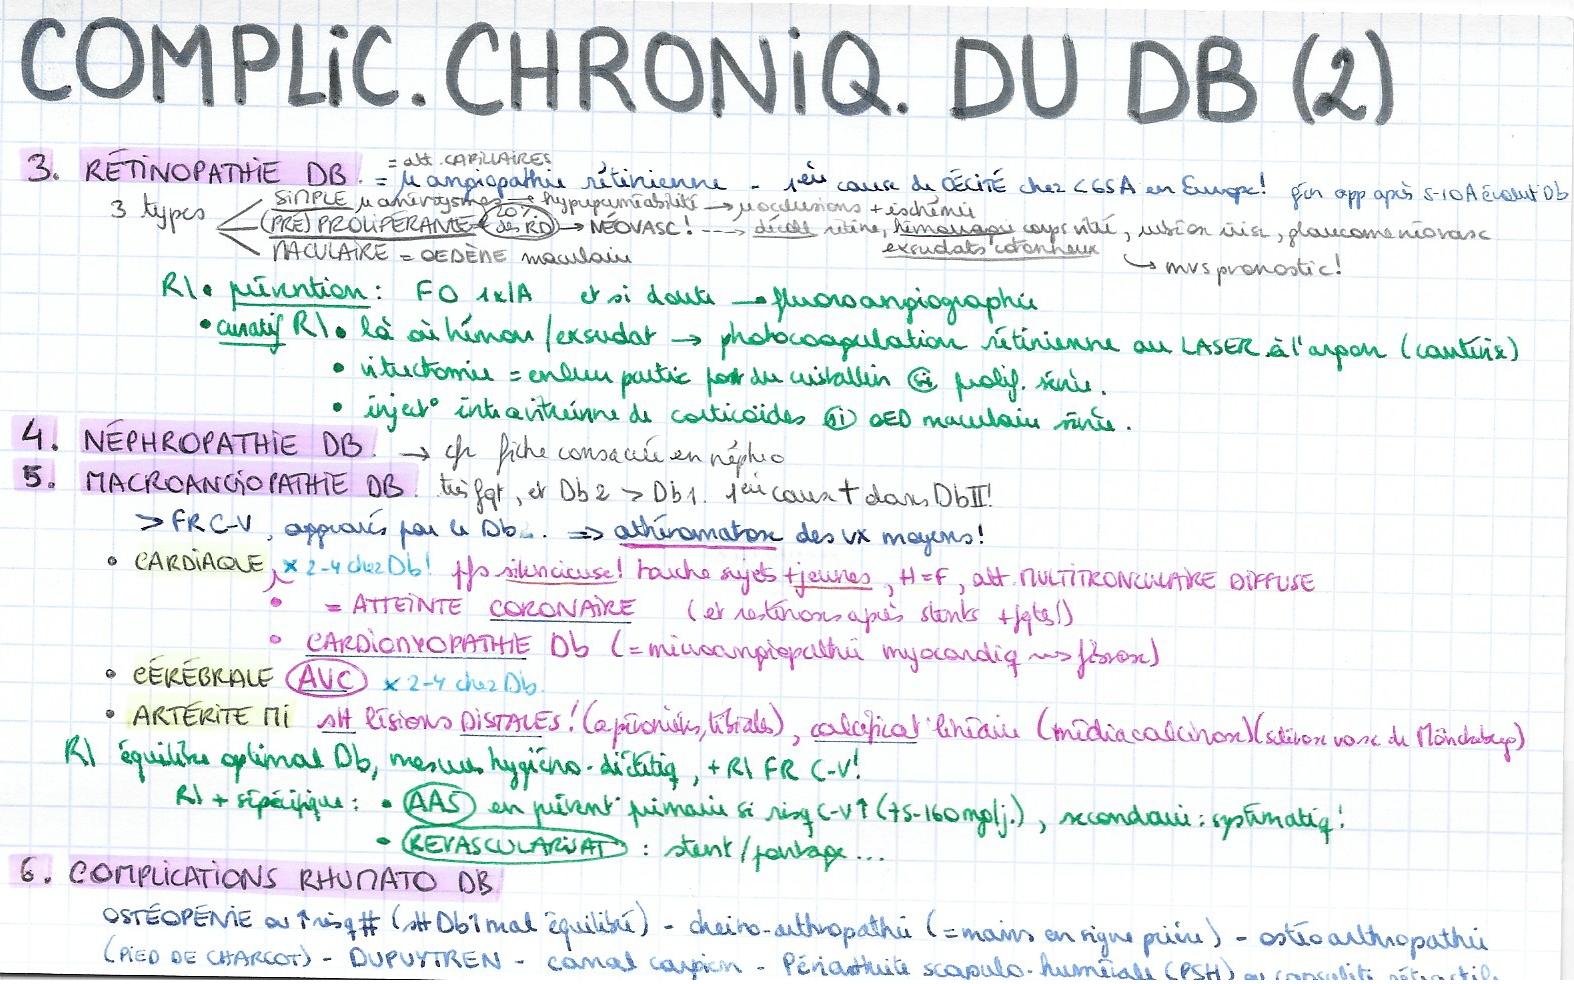 COMPLIC. CHRONIQ. DU DB (2)
= att. CAPILLAIRES
3. RÉTINOPATHIE DB. = µangiopathie rétinienne - 1ère cause de CÉCITÉ chez < 65A en Europe! gén app après 5-10A évolut Db
3 types
SIMPLE µanévrysmes → hyperperméabilité → µocclusions + ischémie
(PRÉ) PROLIFÉRANTE = 20% des RD → NÉOVASC! ---> décoll rétine, hémorragie corps vitré, iris, glaucome néovasc
MACULAIRE = OEDÈME maculaire
exsudats cotonneux
↳ mvs pronostic!
R\ • prévention : FO 1x/A et si doute → fluoroangiographie
• curatif R\ • là où hémorr/exsudat → photocoagulation rétinienne au LASER à l'argon (cautérise)
• vitrectomie = enlever partie post du cristallin si prolif. sévère.
• inject° intravitréenne de corticoïdes si OED maculaire sévère.
4. NÉPHROPATHIE DB. → cfr fiche consacrée en néphro
5. MACROANGIOPATHIE DB. très fqt, et Db2 > Db1. 1ère cause † dans DbII!
> FR C-V, aggravés par le Db... ⇒ athéromatose des vx moyens!
• CARDIAQUE, x 2-4 chez Db! pfs silencieuse! touche sujets + jeunes, H=F, att. MULTITRONCULAIRE DIFFUSE
• = ATTEINTE CORONAIRE (et resténoses après stents + fqtes!)
• CARDIOMYOPATHIE Db (= microangiopathie myocardiq ~> fibrose)
• CÉRÉBRALE AVC x 2-4 chez Db.
• ARTÉRITE MI stt lésions DISTALES! (a péronières, tibiales), calcificat° linéaire (médiacalcinose) (sclérose vasc. de Mönckeberg)
R\ équilibre optimal Db, mesures hygiéno-diététiq, + R\ FR C-V!
R\ + spécifique : • AAS en prévent° primaire si risq C-V↑ (75-160mg/j.), secondaire : systématiq!
• REVASCULARISAT° : stent/pontage...
6. COMPLICATIONS RHUMATO DB
OSTÉOPÉNIE ou ↑ risq # (stt Db1 mal équilibré) - cheiro-arthropathie (= mains en signe prière) - ostéoarthropathie
(PIED DE CHARCOT) - DUPUYTREN - canal carpien - Périarthrite scapulo-humérale (PSH) ou capsulite rétractile